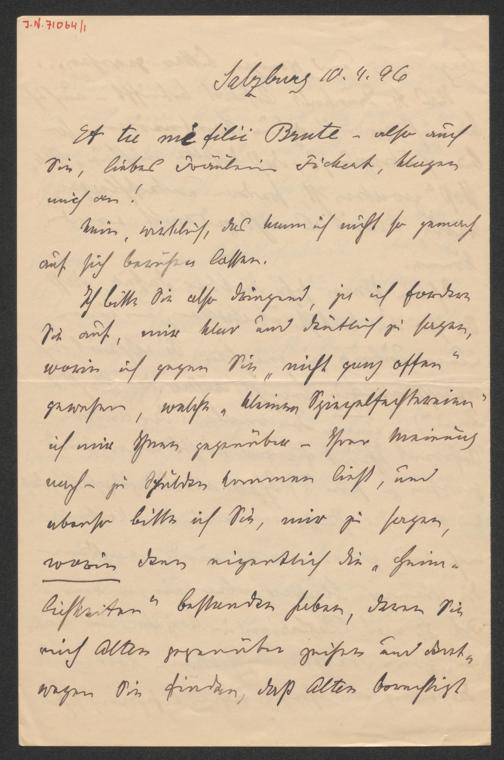 J.N. 71064/1
Salzburg 10. 4. 96
Et tu mi fili Brute – also auch
Sie, liebes Fräulein Fickert, klagen
mich an!
Nein, wirklich, das kann ich nicht so gemach
auf sich beruhen lassen.
Ich bitte Sie also dringend, ja ich fordere
Sie auf, mir klar und deutlich zu sagen,
worin ich gegen Sie „nicht ganz offen"
gewesen, welche „kleinen Spiegelfechtereien"
ich mir Ihnen gegenüber – Ihrer Meinung
nach – zu Schulden kommen ließ, und
ebenso bitte ich Sie, mir zu sagen,
worin denn eigentlich die „Heim-
lichkeiten" bestanden haben, deren Sie
mich Alten gegenüber zeihen und deret-
wegen Sie finden, daß Alten berechtigt